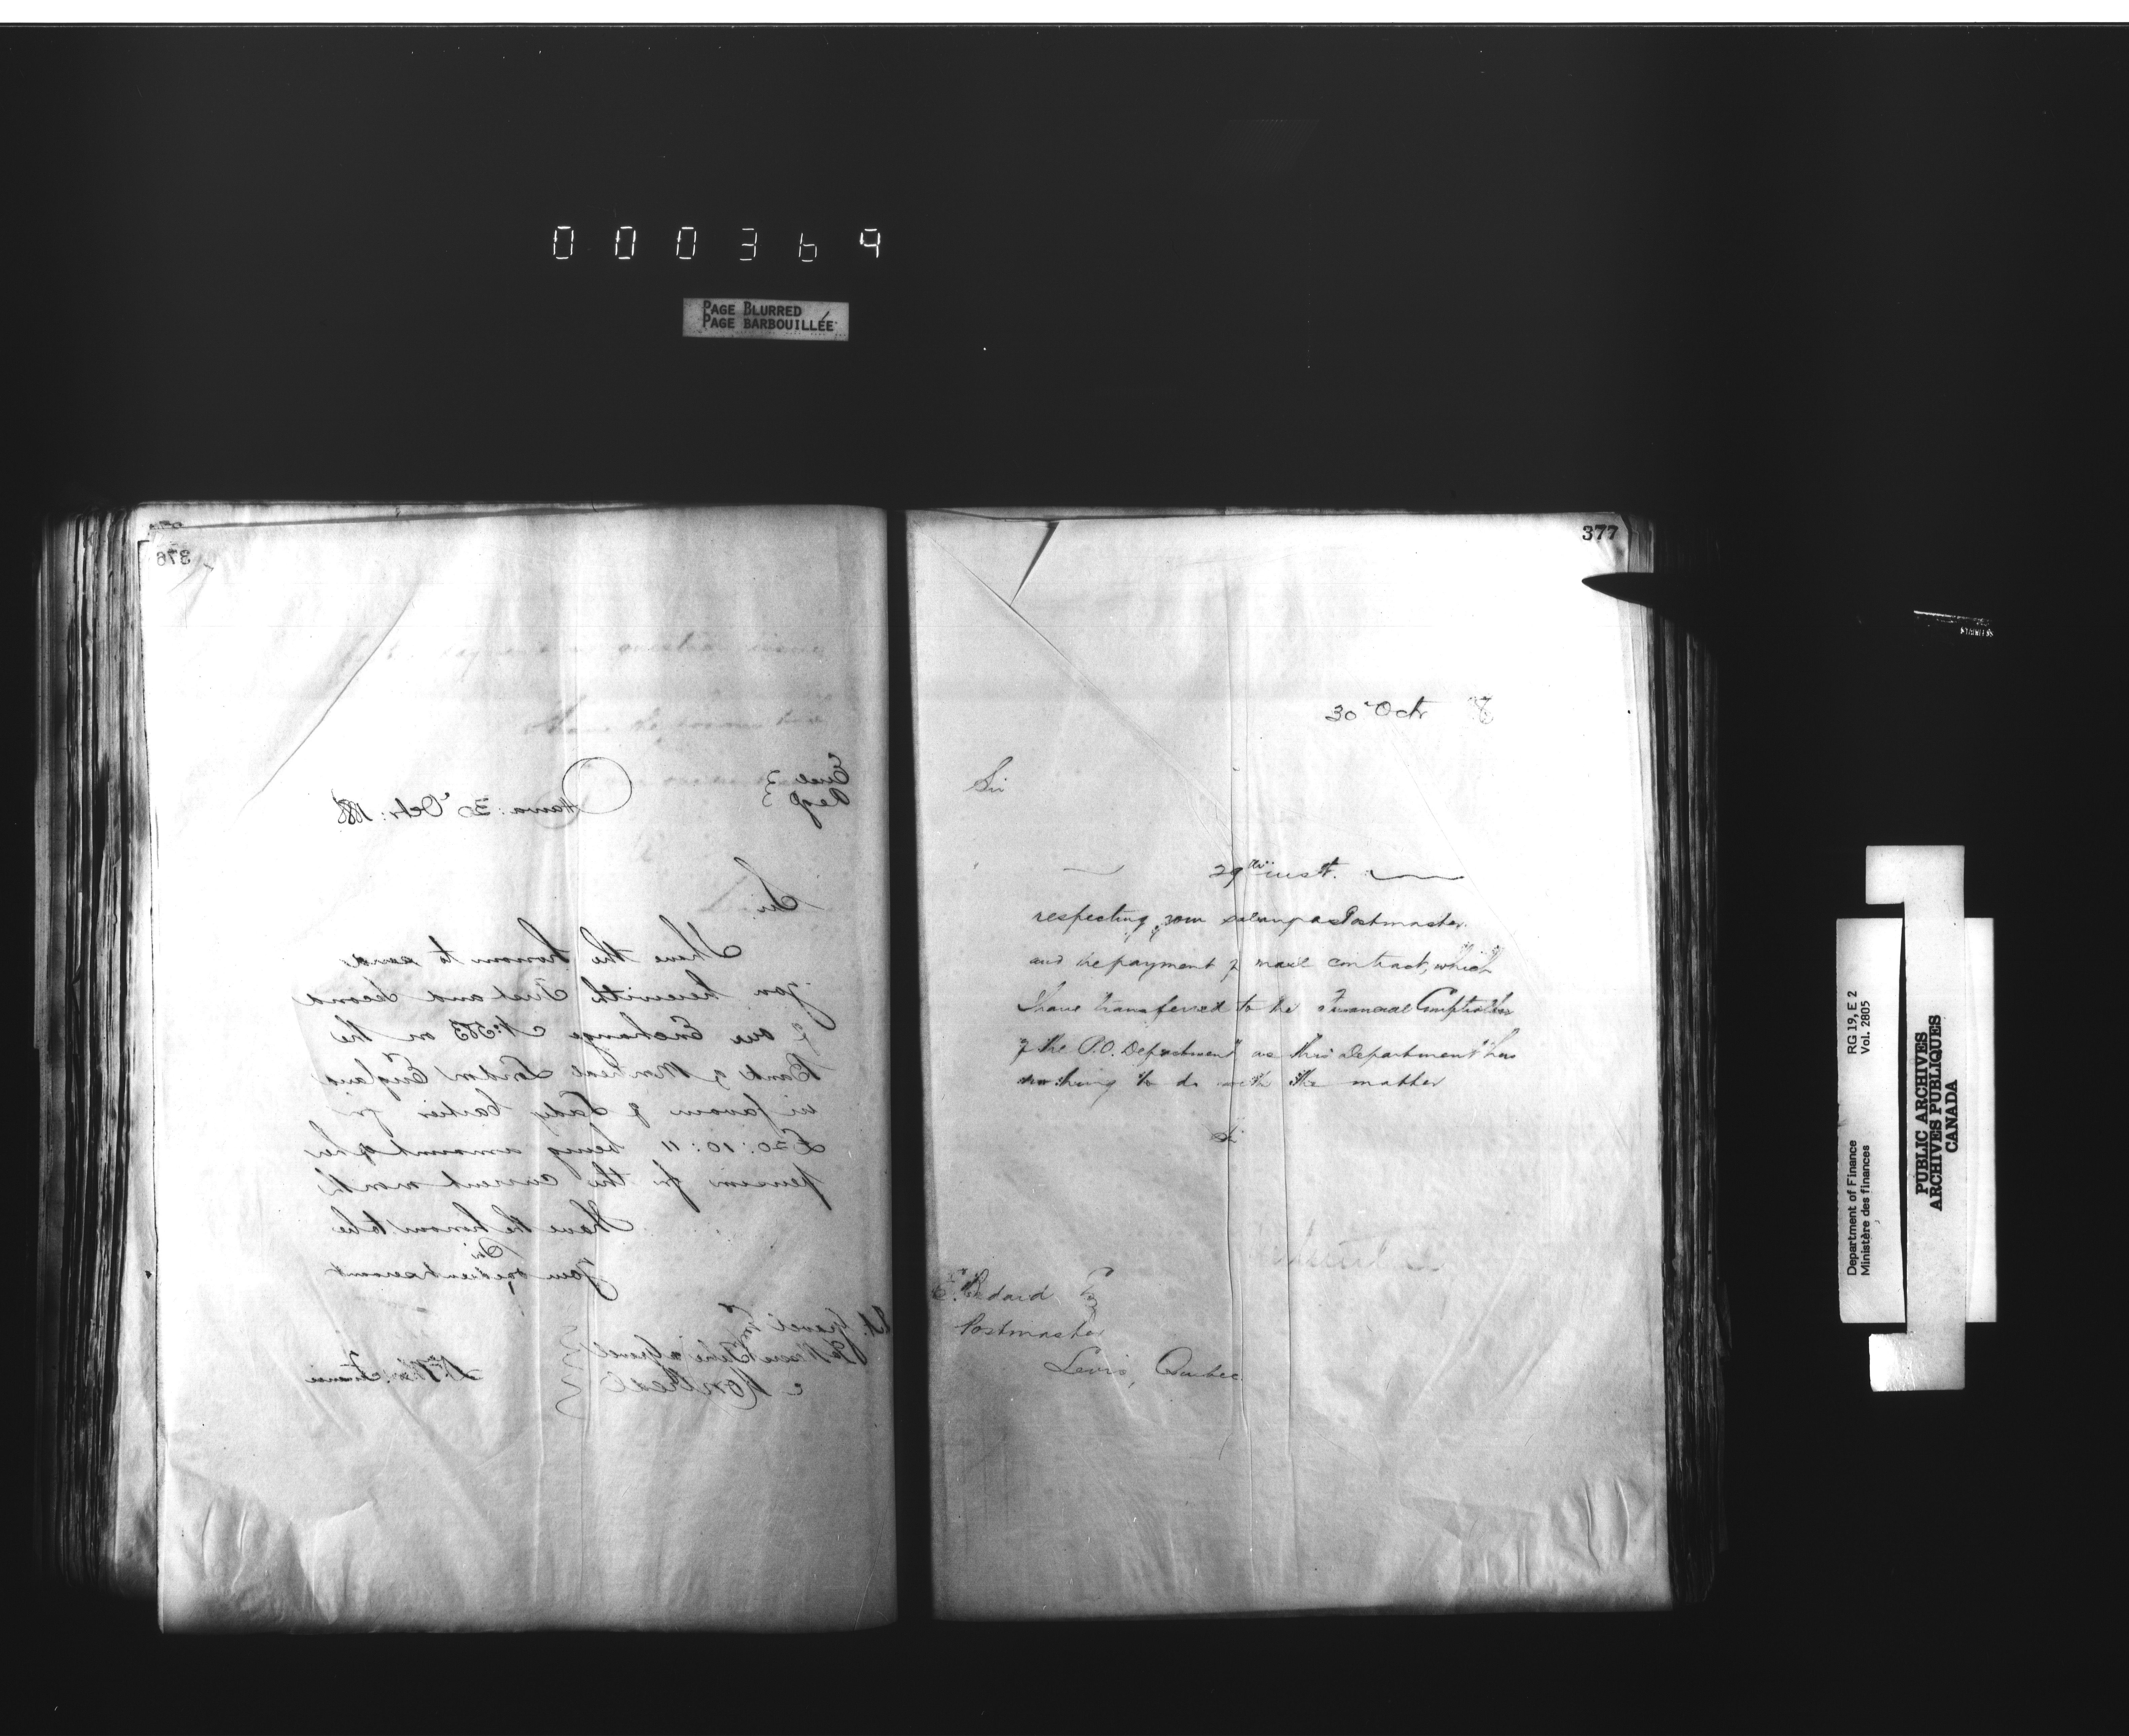 000369
PAGE BLURRED
PAGE BARBOUILLÉE
376
Encl 3
Regd
Ottawa: 30 Octr: 188
Sir
I have the honour to send
you herewith First and Second
of our Exchange No: on the
Bank of Montreal London England
in favour of Lady Cartier for
£20:10:11 being amount of her
pension for the current month
I have the honour to be
Sir
Your obedient servant
Gravel
Montreal
Finance
377
30 Octr
Sir
29th inst.
respecting your salary as Postmaster
and the payment of mail contract, which
I have transferred to the Financial Comptroller
of the P.O. Department as this Department has
nothing to do with the matter
E. Bedard Esq
Postmaster
Levis, Quebec
Department of Finance RG 19, E 2
Ministère des finances Vol. 2805
PUBLIC ARCHIVES
ARCHIVES PUBLIQUES
CANADA